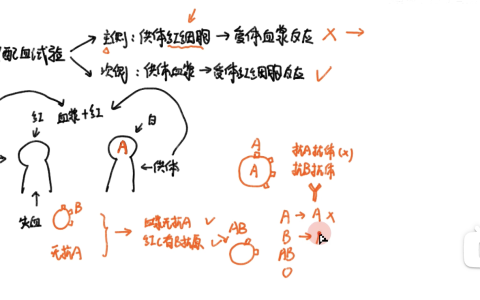 配血试验
主侧：供体红细胞→受体血浆反应 ×→
次侧：供体血浆→受体红细胞反应 ✓
红 血浆+红
白
A
←供体
失血
B
无抗A
血浆无抗A ✓
红C有B抗原 ✓
AB
A
A
抗A抗体(×)
抗B抗体
A → A ×
B →
AB
O